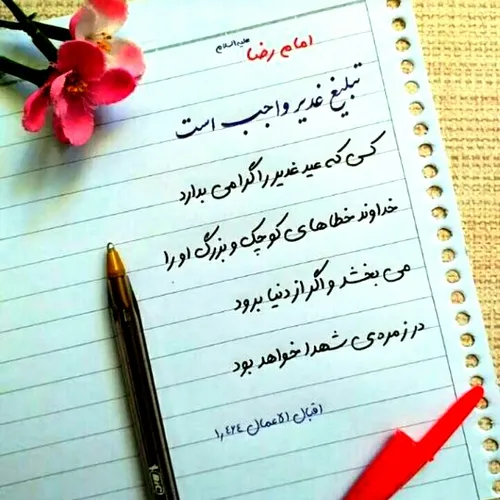 امام رضا علیه‌السلام
تبلیغ غدیر واجب است
کسی که عید غدیر را گرامی بدارد
خداوند خطاهای کوچک و بزرگ او را
می بخشد و اگر از دنیا برود
در زمره‌ی شهدا خواهد بود
اقبال الاعمال ۱,۴۲۴
BIC